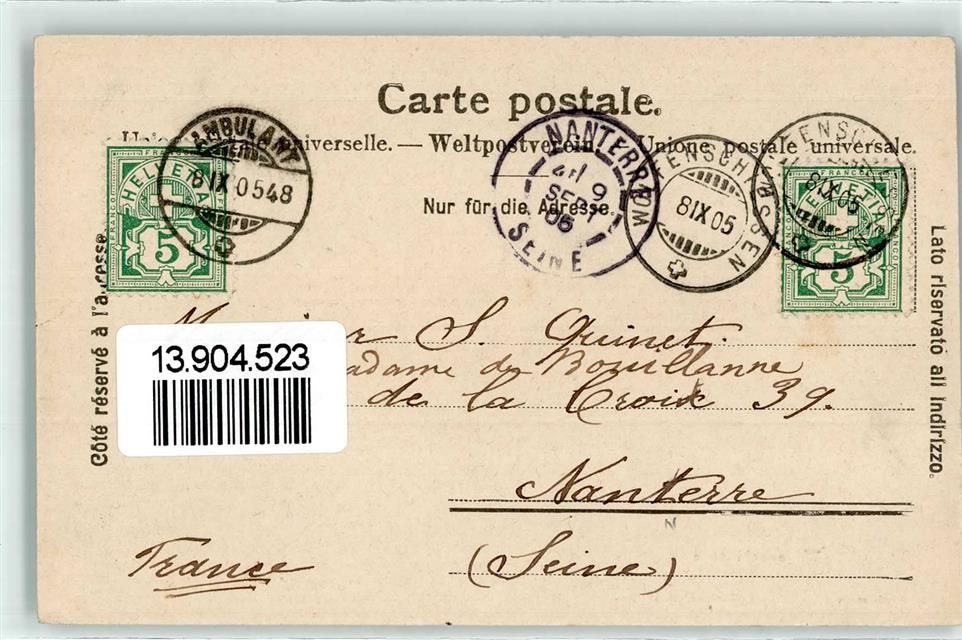 Carte postale.
universelle. — Weltpostverein. Union postale universale.
Nur für die Adresse.
AMBULANT
8 IX 05 48
HELVETIA
5
NANTERRE
9
SEPT
05
SEINE
8 IX 05
8 IX 05
HELVETIA
FRANCO
5
Côté réservé à l'adresse
Lato riservato all indirizzo.
13.904.523
S. Quinet.
de Bouillanne
de la Croix 39.
Nanterre
N
France
(Seine)